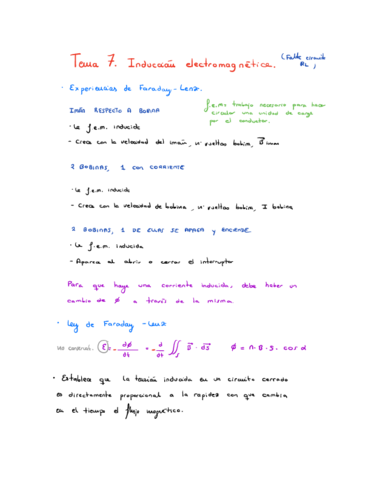 Tema 7. Inducción electromagnética. (Falta circuito RL)
· Experiencias de Faraday-Lenz.
f.e.m: trabajo necesario para hacer
circular una unidad de carga
por el conductor.
IMÁN RESPECTO A BOBINA
· Ie f.e.m. inducida
- Crece con la velocidad del iman, nº vueltas bobina, B iman
2 BOBINAS, 1 con CORRIENTE
· Ie f.e.m. inducida
- Crece con la velocidad de bobina, nº vueltas bobina, I bobina
2 BOBINAS, 1 DE ELLAS SE APAGA y ENCIENDE.
· Ie f.e.m. inducida
- Aparece al abrir o cerrar el interruptor
Para que haya una corriente inducida, debe haber un
cambio de Φ a través de la misma.
· Ley de Faraday-Lenz
ε = - dΦ/dt = - d/dt ∬s B · ds Φ = n · B · S · cos α
· Establece que la tensión inducida en un circuito cerrado
es directamente proporcional a la rapidez con que cambia
en el tiempo el flujo magnético.